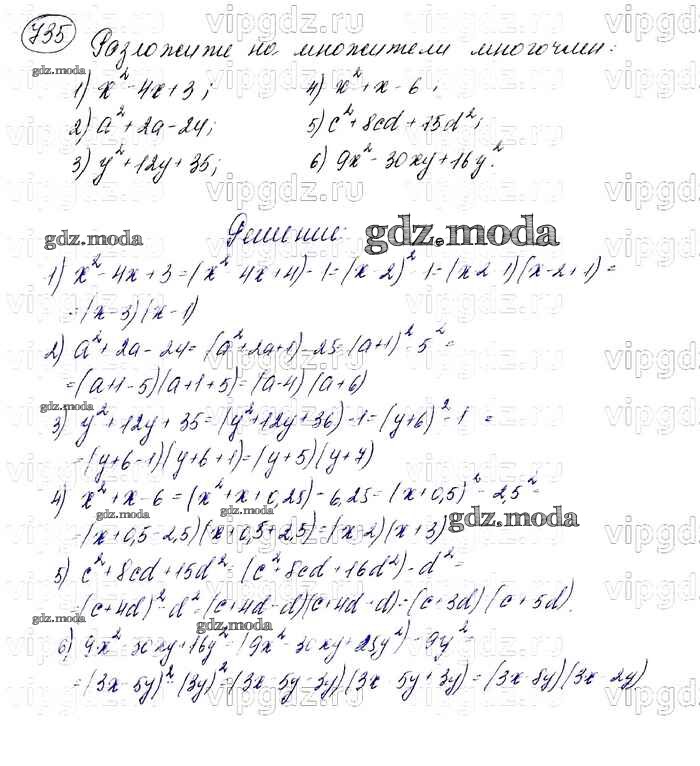 735 Разложите на множители многочлен:
1) x² - 4x + 3; 4) x² + x - 6;
2) a² + 2a - 24; 5) c² + 8cd + 15d²;
3) y² + 12y + 35; 6) 9x² - 30xy + 16y².
Решение:
1) x² - 4x + 3 = (x² 4x + 4) - 1 = (x - 2)² - 1 = (x 2 1)(x - 2 + 1) =
= (x - 3)(x - 1)
2) a² + 2a - 24 = (a² + 2a + 1) - 25 = (a + 1)² - 5² =
= (a + 1 - 5)(a + 1 + 5) = (a - 4)(a + 6)
3) y² + 12y + 35 = (y² + 12y + 36) - 1 = (y + 6)² - 1 =
= (y + 6 - 1)(y + 6 + 1) = (y + 5)(y + 7)
4) x² + x - 6 = (x² + x + 0,25) - 6,25 = (x + 0,5)² - 2,5² =
= (x + 0,5 - 2,5)(x + 0,5 + 2,5) = (x - 2)(x + 3)
5) c² + 8cd + 15d² = (c² + 8cd + 16d²) - d² =
= (c + 4d)² - d² = (c + 4d - d)(c + 4d + d) = (c + 3d)(c + 5d).
6) 9x² - 30xy + 16y² = (9x² - 30xy + 25y²) - 9y² =
= (3x - 5y)² - (3y)² = (3x - 5y - 3y)(3x - 5y + 3y) = (3x - 8y)(3x - 2y)
gdz.moda
vipgdz.ru